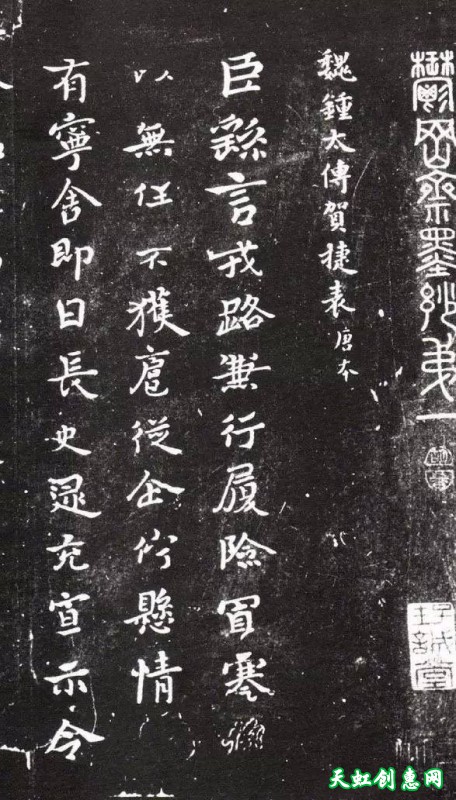 鬱岡齋墨妙弟一
魏鍾太傅賀捷表 唐本
臣繇言戎路兼行履險冒寒
以無任不獲扈從企佇懸情
有寧舍即日長史逯充宣示令
天虹创惠网